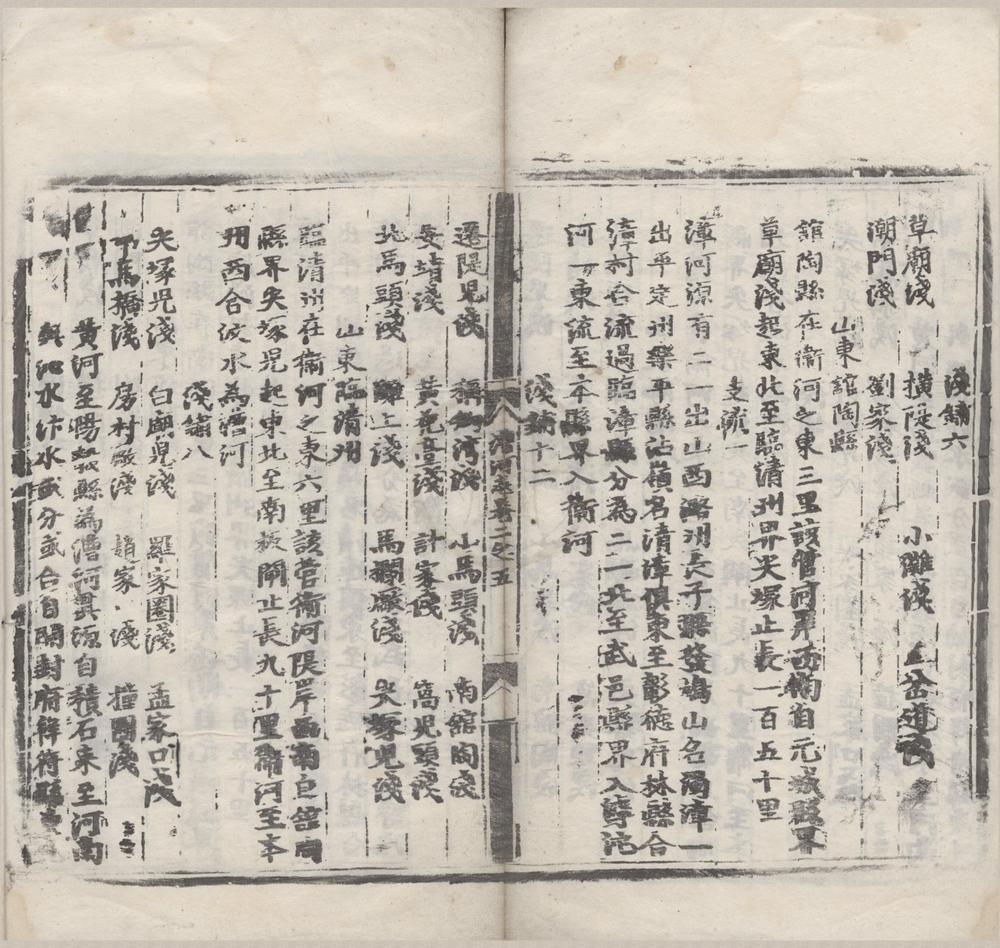 淺鋪六
草廟淺 橫隄淺 小灘淺 三岔道淺
潮門淺 劉家淺
山東館陶縣
館陶縣在衞河之東三里該管河岸西南自元城縣界
草廟淺起東北至臨清州界尖塚止長一百五十里
支流一
漳河源有二一出山西潞州長子縣發鳩山名濁漳一
出平定州樂平縣沾嶺名清漳俱東至彰德府林縣合
漳村合流過臨漳縣分為二一北至武邑縣界入滹沱
河一東流至本縣界入衞河
淺鋪十二
漕河 卷二之五
遷隄兒淺 稱鈎灣淺 小馬頭淺 南館陶淺
安靖淺 黃花臺淺 計家淺 窩兒頭淺
北馬頭淺 灘上淺 馬攔厰淺 尖塚兒淺
山東臨清州
臨清州在衞河之東六里該管衞河隄岸西南自館陶
縣界尖塚兒起東北至南板閘止長九十里衞河至本
州西合汶水為漕河
淺鋪八
尖塚兒淺 白廟兒淺 羅家圈淺 孟家口淺
丁馬 淺 房村厰淺 趙家淺 撞圈淺
黃河至陽穀縣為漕河異源自積石來至河南
與沁水汴水或分或合自開封府祥符縣